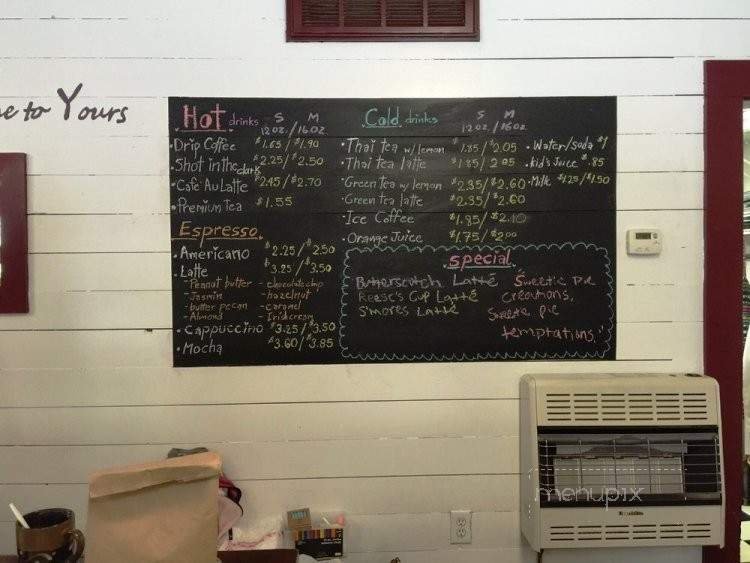 e to Yours
Hot drinks S M
12oz. / 16oz
• Drip Coffee $1.65 / $1.90
• Shot in the dark $2.25 / $2.50
• Cafe Au Latte $2.45 / $2.70
• Premium tea $1.55
Espresso
• Americano $2.25 / $2.50
• Latte $3.25 / $3.50
- Peanut butter - chocolate chip
- Jasmin - hazelnut
- butter pecan - caramel
- Almond - Irishcream
• Cappuccino $3.25 / $3.50
• Mocha $3.60 / $3.85
Cold drinks S M
12oz. / 16oz.
• Thai tea w/ lemon $1.85 / $2.05
• Thai tea latte $1.85 / 2.05
• Green tea w/ lemon $2.35 / $2.60
• Green tea latte $2.35 / $2.60
• Ice Coffee $1.85 / $2.10
• Orange Juice $1.75 / $2.00
• Water/Soda $1
• kid's Juice $.85
• Milk $1.25 / $1.50
special
Butterscotch Latté
Reese's Cup Latté
S'mores Latté
Sweetie Pie
Creations,
Sweetie Pie
temptations."
menupix